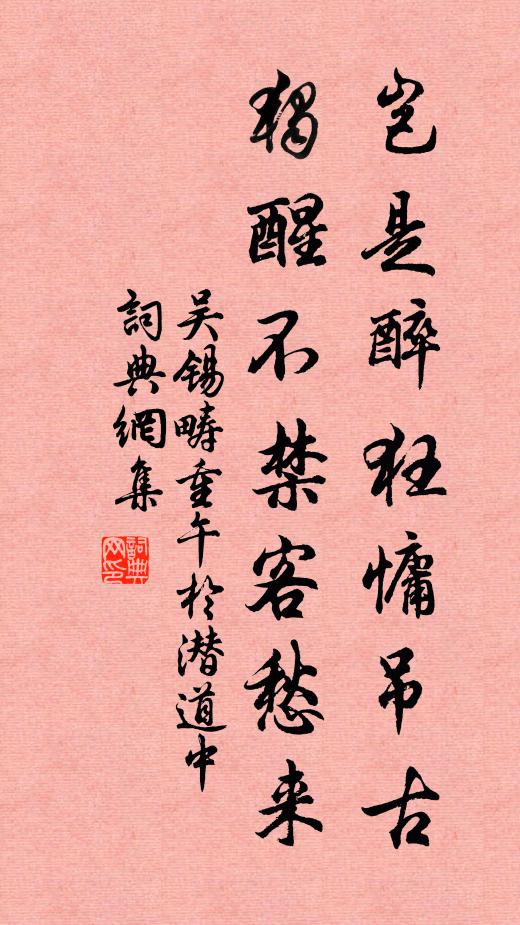 岂是醉狂慵吊古
独醒不禁客愁来
吴锡畴重午於潜道中
詞典網集
詞典网印